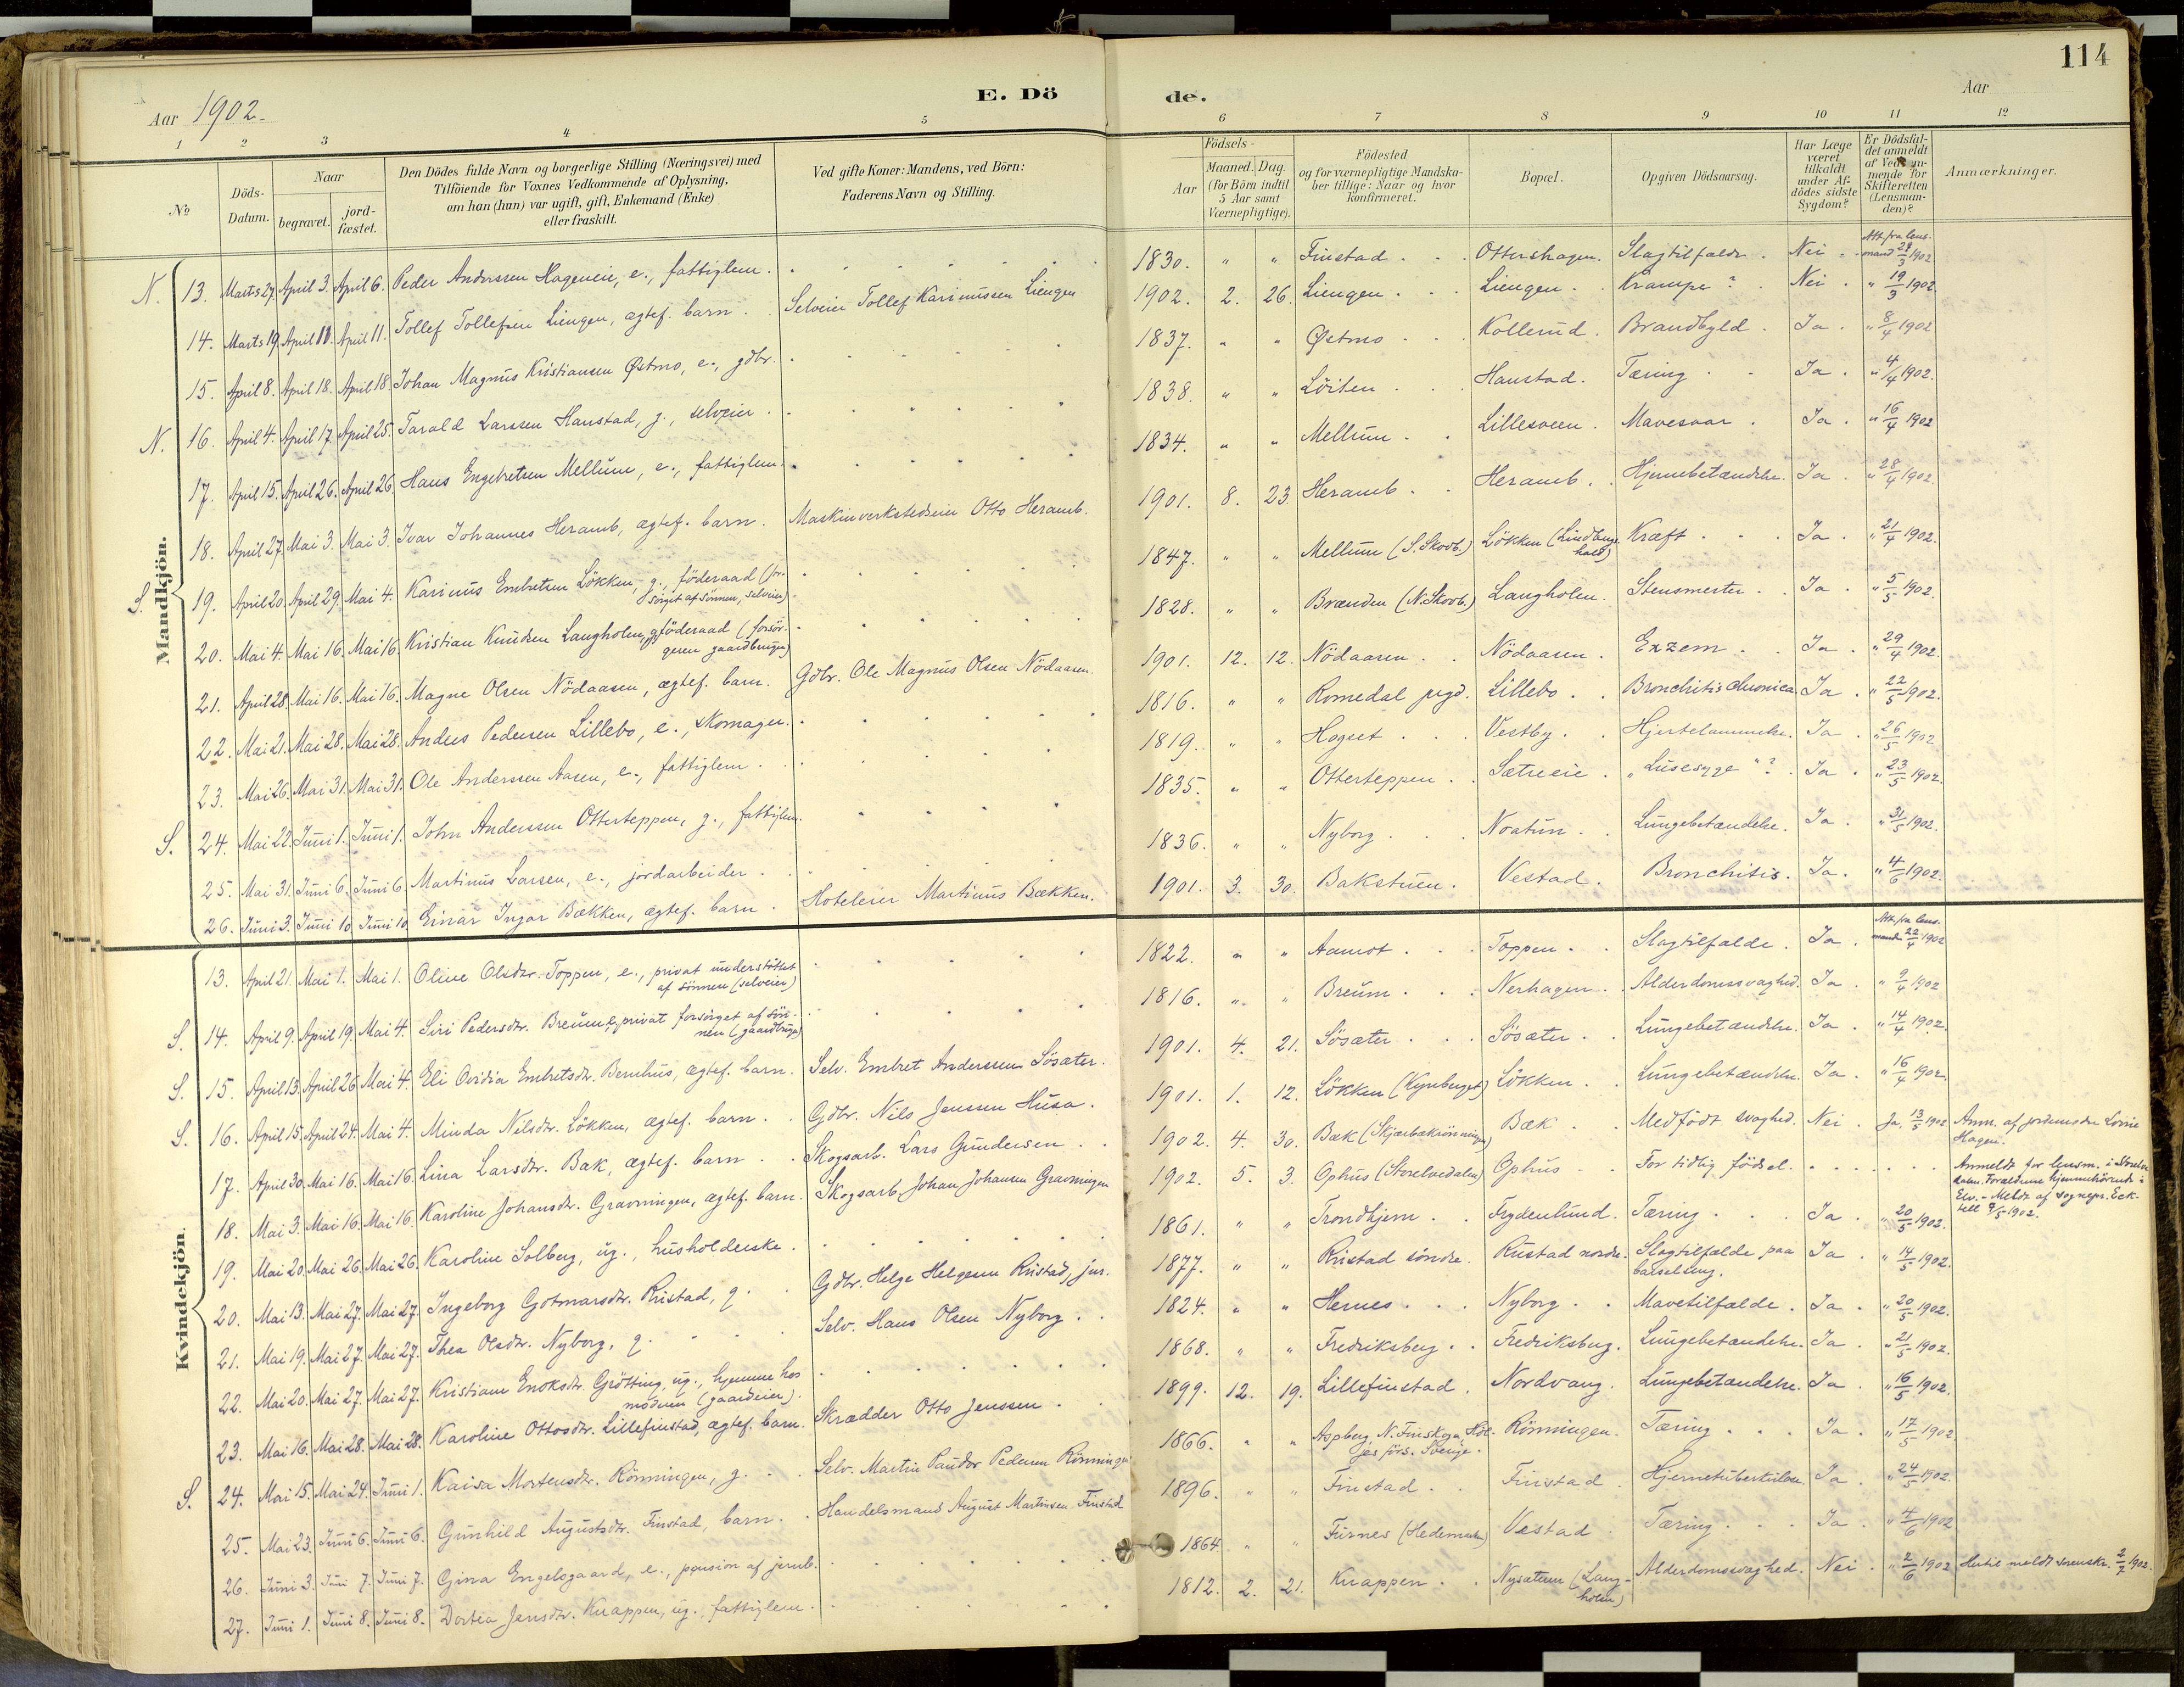 114
Aar 1902.
E. Dö de.
Aar
1 2 3 4 5 6 7 8 9 10 11 12
No
Döds-Datum.
Naar
begravet.
jord-fæstet.
Den Dödes fulde Navn og borgerlige Stilling (Næringsvei) med
Tilföiende for Voxnes Vedkommende af Oplysning,
om han (hun) var ugift, gift, Enkemand (Enke)
eller fraskilt.
Ved gifte Koner: Mandens, ved Börn:
Faderens Navn og Stilling.
Födsels-
Aar
Maaned. Dag.
(for Börn indtil
5 Aar samt
Værnepligtige).
Födested
og for værnepligtige Mandska-
ber tillige: Naar og hvor
konfirmeret.
Bopæl.
Opgiven Dödsaarsag.
Har Læge
været
tilkaldt
under Af-
dödes sidste
Sygdom?
Er Dödsfal-
det anmeldt
af Vedkom-
mende for
Skifteretten
(Lensman-
den)?
Anmærkninger.
Mandkjön.
N. 13. Marts 27. April 3. April 6. Peder Anderssen Hageneie, e., fattiglem. 1830. " " Finstad. Ottershagen. Slagtilfælde. Nei. Att. fra lens-mand 28/3 1902
14. Marts 19. April 11. April 11. Tollef Tollefsen Liengen, ægtef. barn. Selveier Tollef Karinussen Liengen 1902. 2. 26. Liengen. Liengen. Krampe? Nei. " 19/3 1902.
15. April 8. April 18. April 18. Johan Magnus Kristiansen Østmo, e., gdbr. 1837. " " Østmo. Kollerud. Brandbyld. Ja. " 8/4 1902
N. 16. April 4. April 17. April 25. Tarald Larssen Hanstad, g., selveier. 1838. " " Löiten. Hanstad. Tæring. Ja. " 4/4 1902.
17. April 15. April 26. April 26. Hans Engebretsen Mellum, e., fattiglem. 1834. " " Mellum. Lillesveen. Mavesaar. Ja. " 16/4 1902
18. April 27. Mai 3. Mai 3. Ivar Johannes Heramb, ægtef. barn. Maskinverkstedeier Otto Heramb. 1901. 8. 23. Heramb. Heramb. Hjernebetændelse. Ja. " 28/4 1902.
S. 19. April 20. April 29. Mai 4. Karinus Embretsen Lökken, g., föderaad (for-
sörget af sönnen, selveier) 1847. " " Mellum (S. Skovb.) Lökken (Lindberg-
hald) Kræft. Ja. " 21/4 1902.
20. Mai 4. Mai 16. Mai 16. Kristian Knudsen Langholen, g. föderaad (forsör-
geren gaardbruger) 1828. " " Brænden (N. Skovb.) Langholen. Stensmerter. Ja. " 5/5 1902.
21. April 28. Mai 16. Mai 16. Magne Olsen Nödaasen, ægtef. barn. Gdbr. Ole Magnus Olsen Nödaasen. 1901. 12. 12. Nödaasen. Nödaasen. Exzem. Ja. " 29/4 1902.
22. Mai 21. Mai 28. Mai 28. Anders Pedersen Lillebo, e., skomager. 1816. " " Romedal prgd. Lillebo. Bronchitis chronica. Ja. " 22/5 1902.
23. Mai 26. Mai 31. Mai 31. Ole Anderssen Aasen, e., fattiglem. 1819. " " Hogset. Vestby. Hjertelammelse. Ja. " 26/5 1902
S. 24. Mai 22. Juni 1. Juni 1. John Anderssen Otterteppen, g., fattiglem. 1835. " " Otterteppen. Sætreeie. "Lusesyge"? Ja. " 23/5 1902.
25. Mai 31. Juni 6. Juni 6. Martinus Larsen, e., jordarbeider. 1836. " " Nyborg. Noatun. Lungebetændelse. Ja. " 31/5 1902.
26. Juni 3. Juni 10. Juni 10. Einar Ingar Bækken, ægtef. barn. Hoteleier Martinus Bækken. 1901. 3. 30. Bakstuen. Vestad. Bronchitis. Ja. " 4/6 1902.
Kvindekjön.
13. April 21. Mai 1. Mai 1. Oline Olsdtr. Toppen, e., privat understöttet
af sönnen (selveier) 1822. " " Aamot. Toppen. Slagtilfælde. Ja. Att. fra lens-mand 22/4 1902
S. 14. April 9. April 19. Mai 4. Siri Pedersdtr. Breum, e., privat forsörget af sön-
nen (gaardbrug.) 1816. " " Breum. Nerhagen. Alderdomssvaghed. Ja. " 9/4 1902
S. 15. April 13. April 26. Mai 4. Eli Ovidia Embretsdtr. Bernhus, ægtef. barn. Selv. Embret Anderssen Sösæter. 1901. 4. 21. Sösæter. Sösæter. Lungebetændelse. Ja. " 14/4 1902.
S. 16. April 15. April 24. Mai 4. Minda Nilsdtr. Lökken, ægtef. barn. Gdbr. Nils Jenssen Husa. 1901. 1. 12. Lökken (Kynberget) Lökken. Lungebetændelse. Ja. " 16/4 1902.
17. April 30. Mai 16. Mai 16. Lina Larsdtr. Bæk, ægtef. barn. Skogsarb. Lars Gundersen. 1902. 4. 30. Bæk (Skjærbækrönningen) Bæk. Medfödt svaghed. Nei. Ja, 13/5 1902 Anm. af jordemoder Lovise
Hagen.
18. Mai 3. Mai 16. Mai 16. Karoline Johansdtr. Gravningen, ægtef. barn. Skogsarb. Johan Johansen Gravningen 1902. 5. 3. Ophus (Storelvedalen) Ophus. For tidlig födsel. Anmeldt for lensm. i Storelv-
dalen. Forældrene hjemmehörende i
Elv. - Meldt af sognepr. Eck-
hell 9/5 1902.
19. Mai 20. Mai 26. Mai 26. Karoline Solberg, ug., husholderske. 1861. " " Trondhjem. Frydenlund. Tæring. Ja. " 20/5 1902.
20. Mai 13. Mai 27. Mai 27. Ingeborg Gotmarsdtr. Rustad, g. Gdbr. Helge Helgesen Rustad, jun. 1877. " " Rustad söndre. Rustad nordre. Slagtilfælde paa
barselseng. Ja. " 14/5 1902.
21. Mai 19. Mai 27. Mai 27. Thea Olsdtr. Nyborg, g. Selv. Hans Olsen Nyborg. 1824. " " Hernes. Nyborg. Mavetilfælde. Ja. " 20/5 1902.
22. Mai 20. Mai 27. Mai 27. Kristiane Enoksdtr. Grötting, ug., hjemme hos
moderen (gaardeier). 1868. " " Fredriksberg. Fredriksberg. Lungebetændelse. Ja. " 21/5 1902.
23. Mai 16. Mai 28. Mai 28. Karoline Ottosdtr. Lillefinstad, ægtef. barn. Skrædder Otto Jenssen. 1899. 12. 19. Lillefinstad. Nordvang. Lungebetændelse. Ja. " 16/5 1902.
S. 24. Mai 15. Mai 24. Juni 1. Kaisa Mortensdtr. Rönningen, g. Selv. Martin Pedersen Rönningen 1866. " " Aspberg N. Finskoga
förs. Sverige. Rönningen. Tæring. Ja. " 17/5 1902
25. Mai 23. Juni 6. Juni 6. Gunhild Augustsdtr. Finstad, barn. Handelsmand August Martinsen Finstad 1896. " " Finstad. Finstad. Hjernetuberkulose Ja. " 24/5 1902.
26. Juni 3. Juni 7. Juni 7. Gina Engelsgaard, e., pension af jernb. 1864. " " Furnes (Hedemarken) Vestad. Tæring. Ja. " 4/6 1902
27. Juni 1. Juni 8. Juni 8. Dortea Jensdtr. Knappen, ug., fattiglem. 1812. 2. 21. Knappen. Nysætren (Lang-
holen) Alderdomssvaghed. Nei. " 2/6 1902 Hertil meldt sorenskr. 2/7 1902.